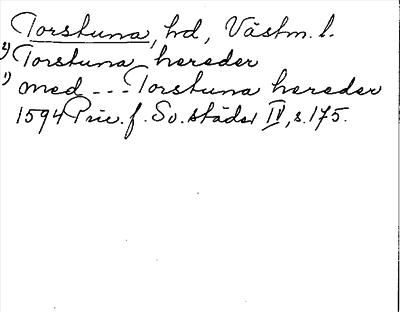 Torstuna, hd, Västm. l.
2) Torstuna hereder
1) med --- Torstuna hereder
1594 Priv. f. Sv. städer IV, s. 175.